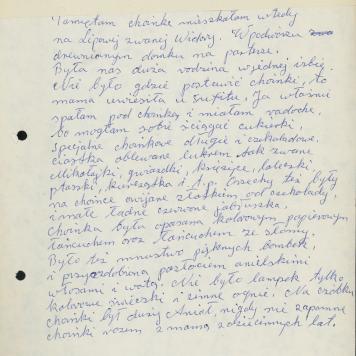 Pamiętam choinkę mieszkałam wtedy
na Lipowej zwanej Widory. W podwórzu
drewnianym domku na parterze.
Była nas duża rodzina w jednej izbie.
Nie było gdzie postawić choinki, to
mama uwiesiła u sufitu. Ja właśnie
spałam pod choinką i miałam radochę,
bo mogłam sobie ściągać cukierki,
specjalne choinkowe długie i czekoladowe.
ciastka oblewane lukrem tak zwane
Mikołajki, gwiazdki, księżyce,
ptaszki, i t.p. Orzechy też były
na choince owijane złotkiem od czekolady,
i małe ładne czerwone jabłuszka.
Choinka była opasana kolorowym papierowym
łańcuchem oraz łańcuchem ze słomy.
Było też mnóstwo pięknych bombek,
i przyozdobiona pozłociem anielskimi
włosami i watą. Nie było lampek tylko
kolorowe świeczki i zimne ognie. Na czubku
choinki był duży Anioł, nigdy nie zapomnę
choinki razem z mamą z dziecinnych lat.